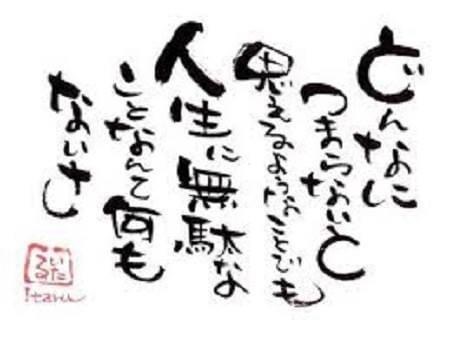 どんなに
つまらないと
思えるようなことでも
人生に無駄な
ことなんて何も
ないさ
いた
る
Itaru